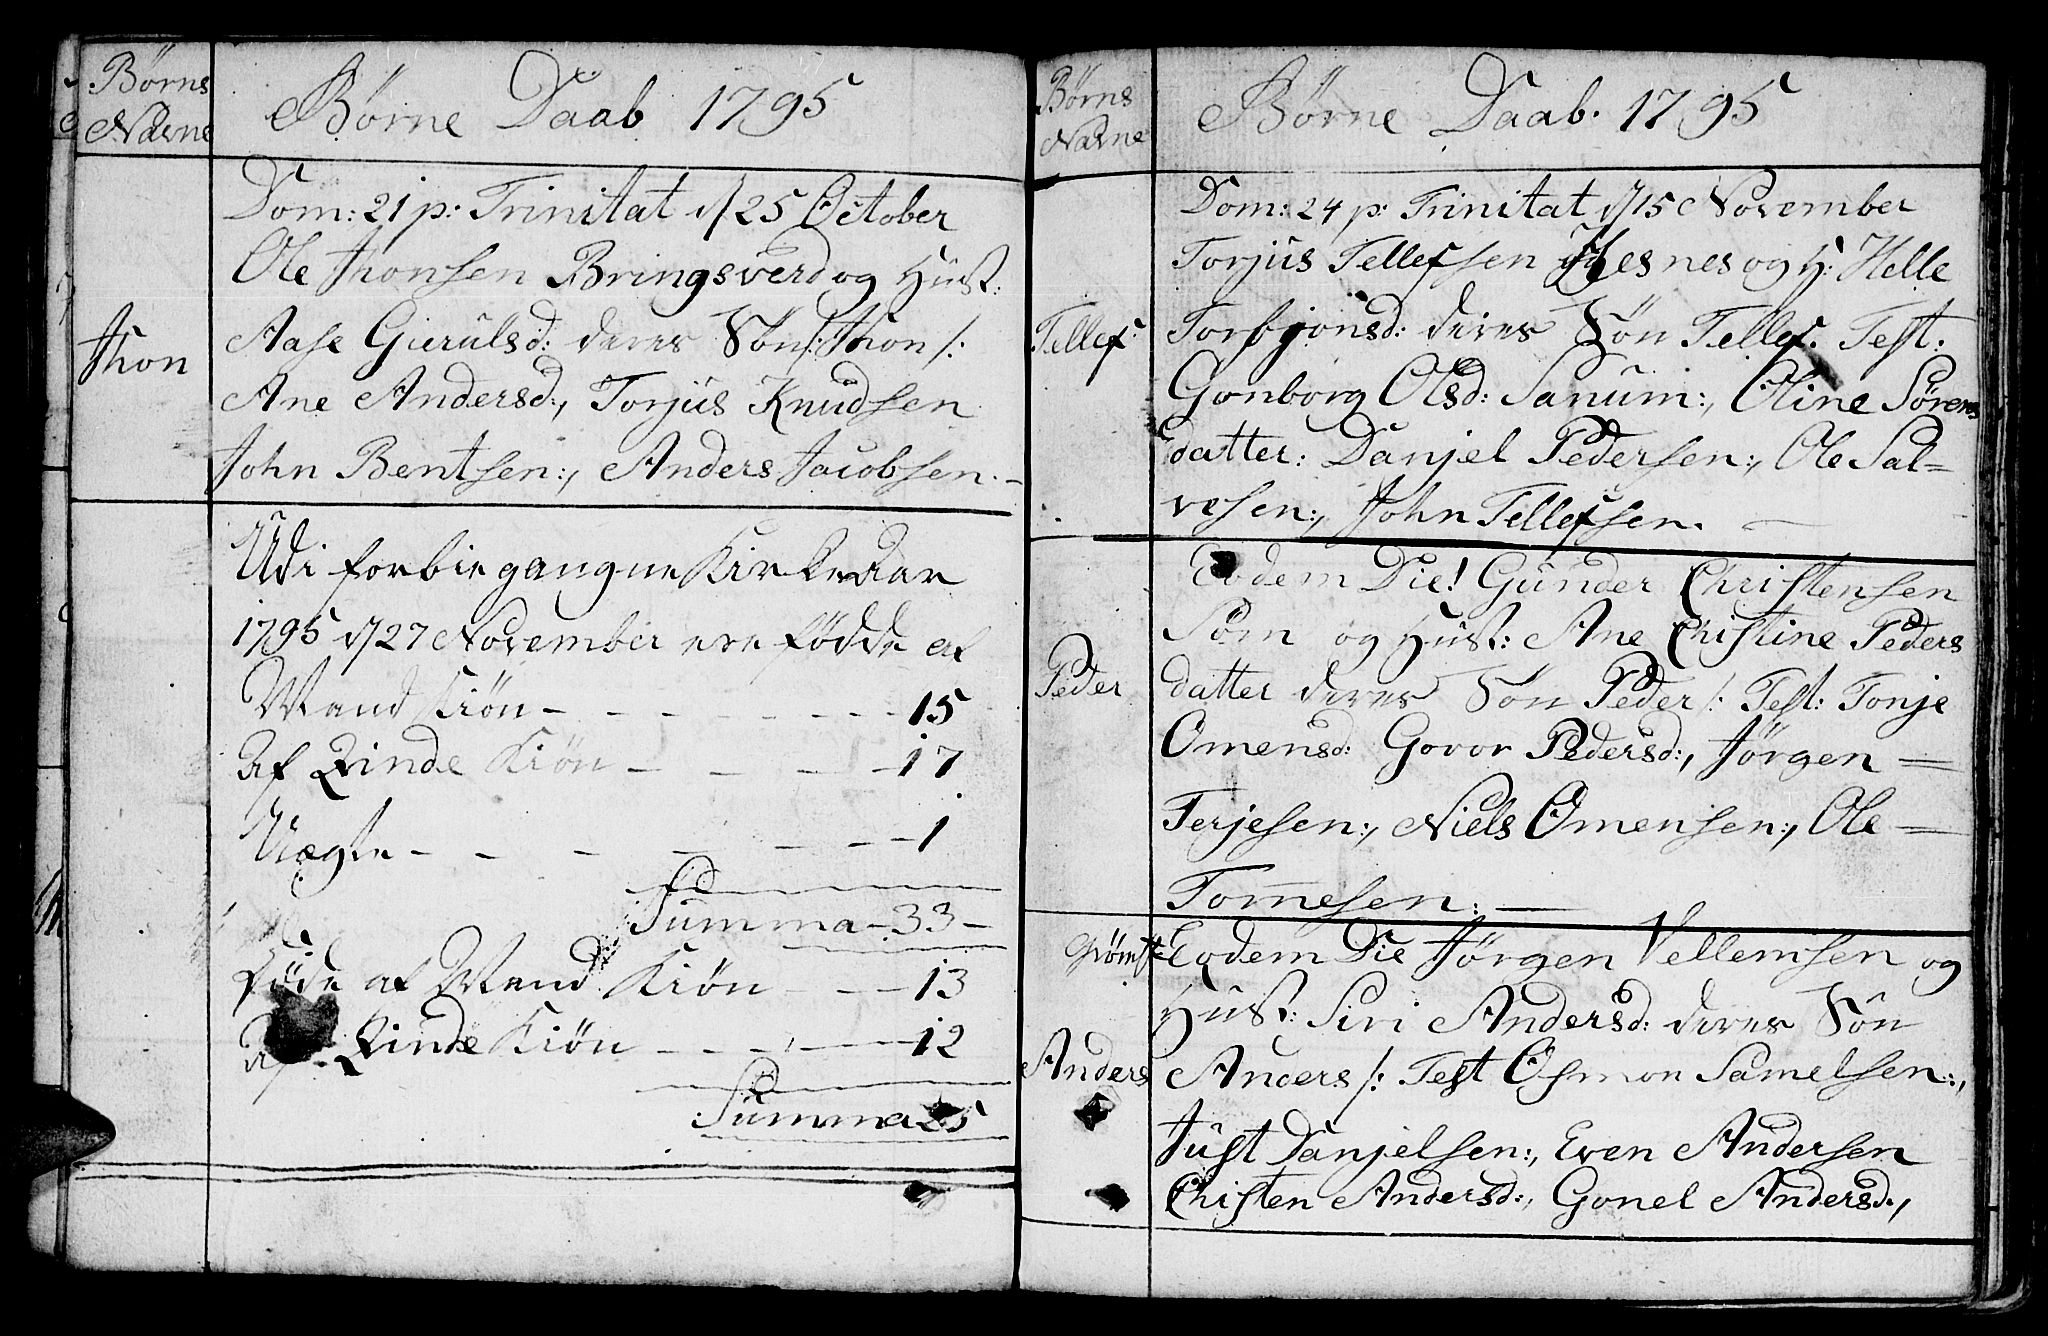 Børns
Navne
Børne Daab 1795
Dom: 21 p: Trinitat d/25 October
Ole Thonsen Bringsverd og Hust:
Thon
Aase Gierulsd: deres Søn /: Thon /:
Ane Andersd:, Torjus Knudsen
John Bentsen:, Anders Jacobsen. –
Udi forbiegangne Kirke Aar
1795 d/27 November ere fødde af
Mand Kiøn – – – – – – – 15
Af Qvinde Kiøn – – – – – 17
Uægte – – – – – – – 1
Summa – 33 –
Døde af Mand Kiøn – – – 13
Af Qvinde Kiøn – – – – – 12
Summa 25
Børns
Navne
Børne Daab. 1795
Dom: 24 p: Trinitat d/15 November
Torjus Tellefsen Hesnes og H: Helle
Tellef
Torbjønsd: deres Søn Tellef. Test:
Gonborg Olsd: Sanum:, Oline Sørens
datter: Danjel Pedersen:, Ole Sal=
vesen:, John Tellefsen. –
Eodem Die! Gunder Christensen
Søm og Hust: Ane Christine Peders
Peder
datter deres Søn Peder /: Test: Tonje
Omensd: Govor Pedersd:, Jørgen –
Terjesen:, Niels Omensen:, Ole –
Tomesen: –
Eodem Die Jørgen Vellemsen og
Hust: Siri Andersd: deres Søn
Anders
Anders /: Test Osmon Samelsen:,
Just Danjelsen:, Even Andersen
Christen Andersd:, Gonel Andersd:,